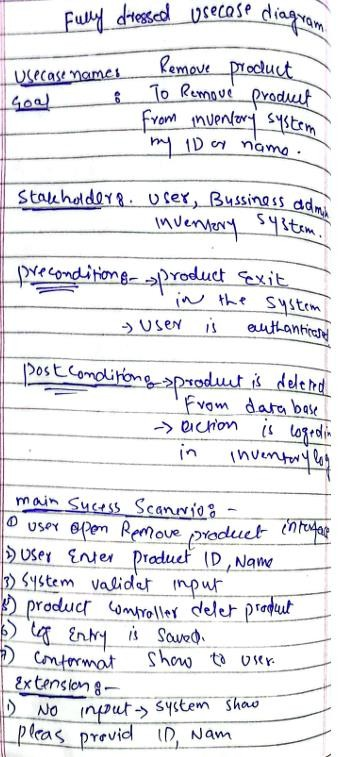 Fully dressed usecase diagram
Usecase names Remove product
Goal : To Remove product
From inventory system
my ID or name.
Stakeholders. User, Bussiness admi
inventory system.
preconditions- →product Exit
in the system
→ User is authanticated
post conditions →product is deleted
From data base
→ Action is loged in
in inventory log
main Sucess Scanerio: -
① User open Remove product interface
2) User Enter product ID, Name
3) System validat input
5) product controller delet product
6) Log Entry is Saved.
7) Conformat Show to user.
Extension: -
1) No input → System show
pleas provid ID, Nam